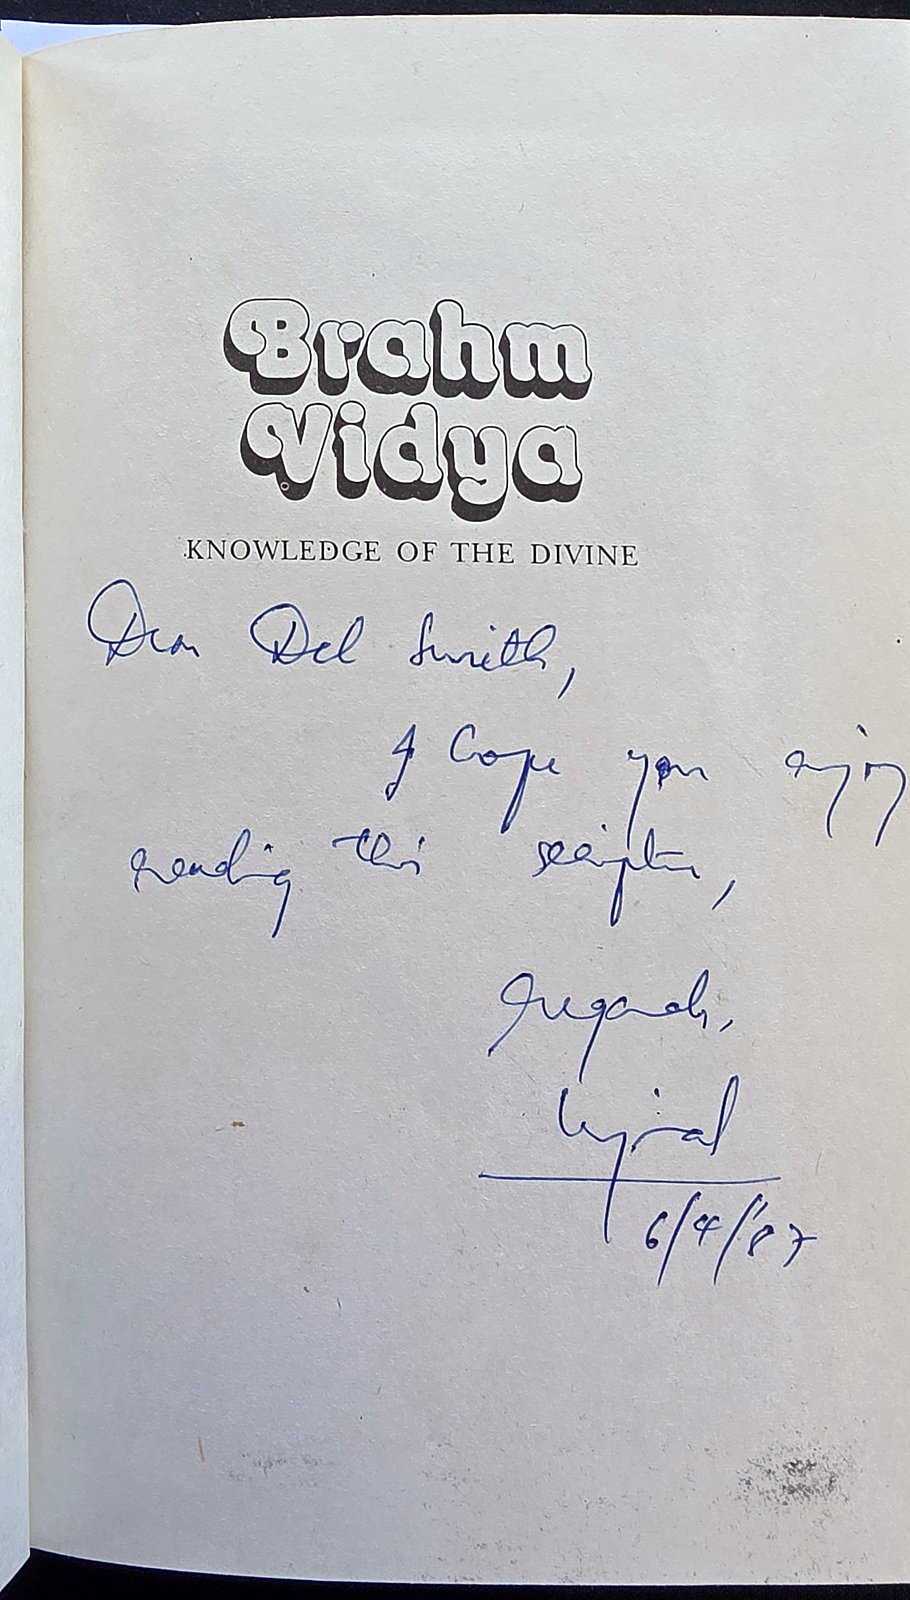 Brahm
Vidya
KNOWLEDGE OF THE DIVINE
Dear Del Smith,
I hope you enjoy
reading this scripture,
regards,
6/4/'87